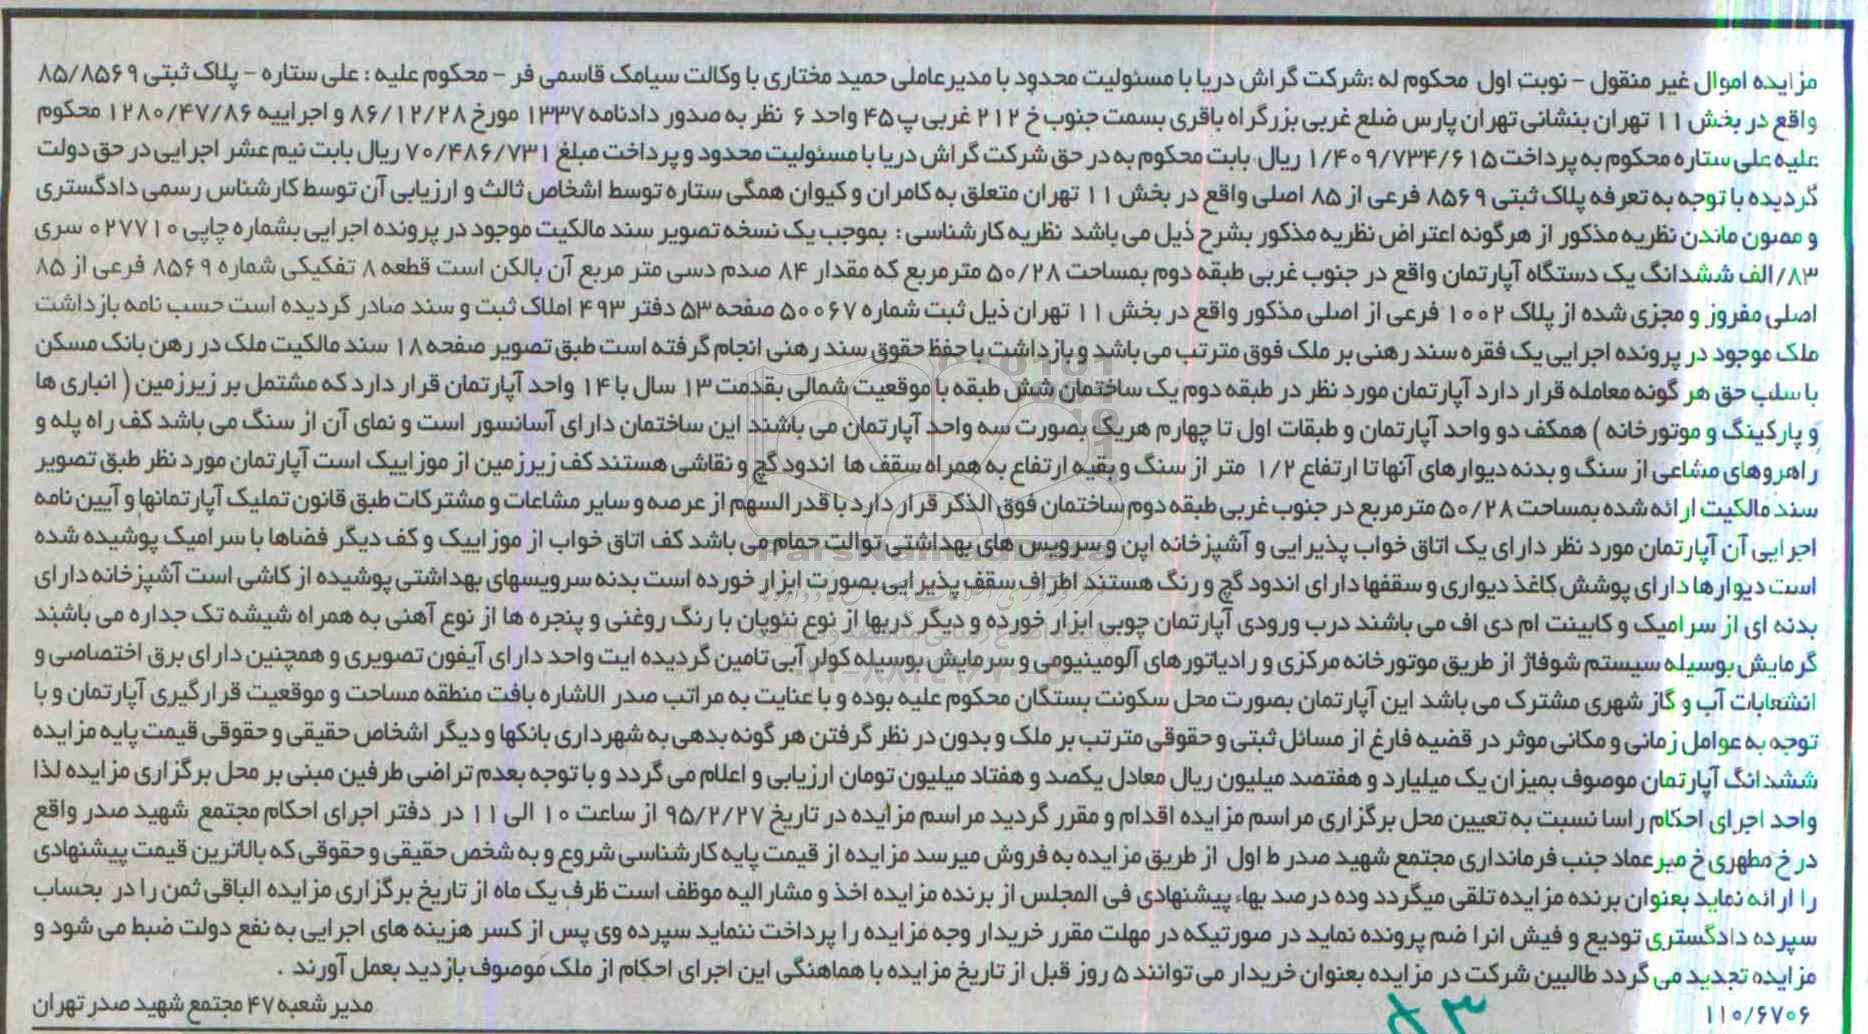 مزایده اموال غیر منقول - نوبت اول محکوم له :شرکت گراش دریا با مسئولیت محدود با مدیرعاملی حمید مختاری با وکالت سیامک قاسمی فر - محکوم علیه : علی ستاره - پلاک ثبتی ۸۵/۸۵۶۹
واقع در بخش ۱۱ تهران بنشانی تهران پارس ضلع غربی بزرگراه باقری بسمت جنوب خ ۲۱۲ غربی پ ۴۵ واحد ۶ نظر به صدور دادنامه ۱۳۳۷ مورخ ۸۶/۱۲/۲۸ و اجراییه ۱۲۸۰/۴۷/۸۶ محکوم
علیه علی ستاره محکوم به پرداخت ۱/۴۰۹/۷۳۴/۶۱۵ ریال بابت محکوم به در حق شرکت گراش دریا با مسئولیت محدود و پرداخت مبلغ ۷۰/۴۸۶/۷۳۱ ریال بابت نیم عشر اجرایی در حق دولت
گردیده با توجه به تعرفه پلاک ثبتی ۸۵۶۹ فرعی از ۸۵ اصلی واقع در بخش ۱۱ تهران متعلق به کامران و کیوان همگی ستاره توسط اشخاص ثالث و ارزیابی آن توسط کارشناس رسمی دادگستری
و مصون ماندن نظریه مذکور از هرگونه اعتراض نظریه مذکور بشرح ذیل می باشد نظریه کارشناسی : بموجب یک نسخه تصویر سند مالکیت موجود در پرونده اجرایی بشماره چاپی ۰۲۷۷۱۰ سری
۸۳/الف ششدانگ یک دستگاه آپارتمان واقع در جنوب غربی طبقه دوم بمساحت ۵۰/۲۸ مترمربع که مقدار ۸۴ صدم دسی متر مربع آن بالکن است قطعه ۸ تفکیکی شماره ۸۵۶۹ فرعی از ۸۵
اصلی مفروز و مجزی شده از پلاک ۱۰۰۲ فرعی از اصلی مذکور واقع در بخش ۱۱ تهران ذیل ثبت شماره ۵۰۰۶۷ صفحه ۵۳ دفتر ۴۹۳ املاک ثبت و سند صادر گردیده است حسب نامه بازداشت
ملک موجود در پرونده اجرایی یک فقره سند رهنی بر ملک فوق مترتب می باشد و بازداشت با حفظ حقوق سند رهنی انجام گرفته است طبق تصویر صفحه ۱۸ سند مالکیت ملک در رهن بانک مسکن
با سلب حق هر گونه معامله قرار دارد آپارتمان مورد نظر در طبقه دوم یک ساختمان شش طبقه با موقعیت شمالی بقدمت ۱۳ سال با ۱۴ واحد آپارتمان قرار دارد که مشتمل بر زیرزمین ( انباری ها
و پارکینگ و موتورخانه ) همکف دو واحد آپارتمان و طبقات اول تا چهارم هریک بصورت سه واحد آپارتمان می باشند این ساختمان دارای آسانسور است و نمای آن از سنگ می باشد کف راه پله و
راهروهای مشاعی از سنگ و بدنه دیوارهای آنها تا ارتفاع ۱/۲ متر از سنگ و بقیه ارتفاع به همراه سقف ها اندود گچ و نقاشی هستند کف زیرزمین از موزاییک است آپارتمان مورد نظر طبق تصویر
سند مالکیت ارائه شده بمساحت ۵۰/۲۸ مترمربع در جنوب غربی طبقه دوم ساختمان فوق الذکر قرار دارد با قدر السهم از عرصه و سایر مشاعات و مشترکات طبق قانون تملیک آپارتمانها و آیین نامه
اجرایی آن آپارتمان مورد نظر دارای یک اتاق خواب پذیرایی و آشپزخانه اپن و سرویس های بهداشتی توالت حمام می باشد کف اتاق خواب از موزاییک و کف دیگر فضاها با سرامیک پوشیده شده
است دیوارها دارای پوشش کاغذ دیواری و سقفها دارای اندود گچ و رنگ هستند اطراف سقف پذیرایی بصورت ابزار خورده است بدنه سرویسهای بهداشتی پوشیده از کاشی است آشپزخانه دارای
بدنه ای از سرامیک و کابینت ام دی اف می باشند درب ورودی آپارتمان چوبی ابزار خورده و دیگر دربها از نوع نئوپان با رنگ روغنی و پنجره ها از نوع آهنی به همراه شیشه تک جداره می باشند
گرمایش بوسیله سیستم شوفاژ از طریق موتورخانه مرکزی و رادیاتورهای آلومینیومی و سرمایش بوسیله کولر آبی تامین گردیده ایت واحد دارای آیفون تصویری و همچنین دارای برق اختصاصی و
انشعابات آب و گاز شهری مشترک می باشد این آپارتمان بصورت محل سکونت بستگان محکوم علیه بوده و با عنایت به مراتب صدر الاشاره بافت منطقه مساحت و موقعیت قرارگیری آپارتمان و با
توجه به عوامل زمانی و مکانی موثر در قضیه فارغ از مسائل ثبتی و حقوقی مترتب بر ملک و بدون در نظر گرفتن هر گونه بدهی به شهرداری بانکها و دیگر اشخاص حقیقی و حقوقی قیمت پایه مزایده
ششدانگ آپارتمان موصوف بمیزان یک میلیارد و هفتصد میلیون ریال معادل یکصد و هفتاد میلیون تومان ارزیابی و اعلام می گردد و با توجه بعدم تراضی طرفین مبنی بر محل برگزاری مزایده لذا
واحد اجرای احکام راسا نسبت به تعیین محل برگزاری مراسم مزایده اقدام و مقرر گردید مراسم مزایده در تاریخ ۹۵/۲/۲۷ از ساعت ۱۰ الی ۱۱ در دفتر اجرای احکام مجتمع شهید صدر واقع
در خ مطهری خ میرعماد جنب فرمانداری مجتمع شهید صدر ط اول از طریق مزایده به فروش میرسد مزایده از قیمت پایه کارشناسی شروع و به شخص حقیقی و حقوقی که بالاترین قیمت پیشنهادی
را ارائه نماید بعنوان برنده مزایده تلقی میگردد وده درصد بهاء پیشنهادی فی المجلس از برنده مزایده اخذ و مشارالیه موظف است ظرف یک ماه از تاریخ برگزاری مزایده الباقی ثمن را در بحساب
سپرده دادگستری تودیع و فیش انرا ضم پرونده نماید در صورتیکه در مهلت مقرر خریدار وجه مزایده را پرداخت ننماید سپرده وی پس از کسر هزینه های اجرایی به نفع دولت ضبط می شود و
مزایده تجدید می گردد طالبین شرکت در مزایده بعنوان خریدار می توانند ۵ روز قبل از تاریخ مزایده با هماهنگی این اجرای احکام از ملک موصوف بازدید بعمل آورند .
۱۱۰/۶۷۰۶ مدیر شعبه ۴۷ مجتمع شهید صدر تهران